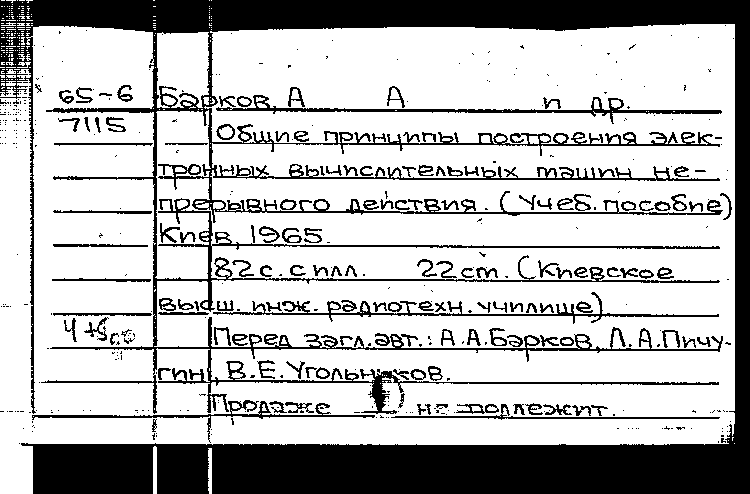 65-6 Барков, А А и др.
7115 Общие принципы построения элек-
тронных вычислительных машин не-
прерывного действия. (Учеб. пособие)
Киев, 1965.
82 с. с илл. 22 см. (Киевское
высш. инж. радиотехн. училище)
Перед загл. авт.: А.А. Барков, Л.А. Пичу-
гин, В.Е. Угольников.
Продаже не подлежит.